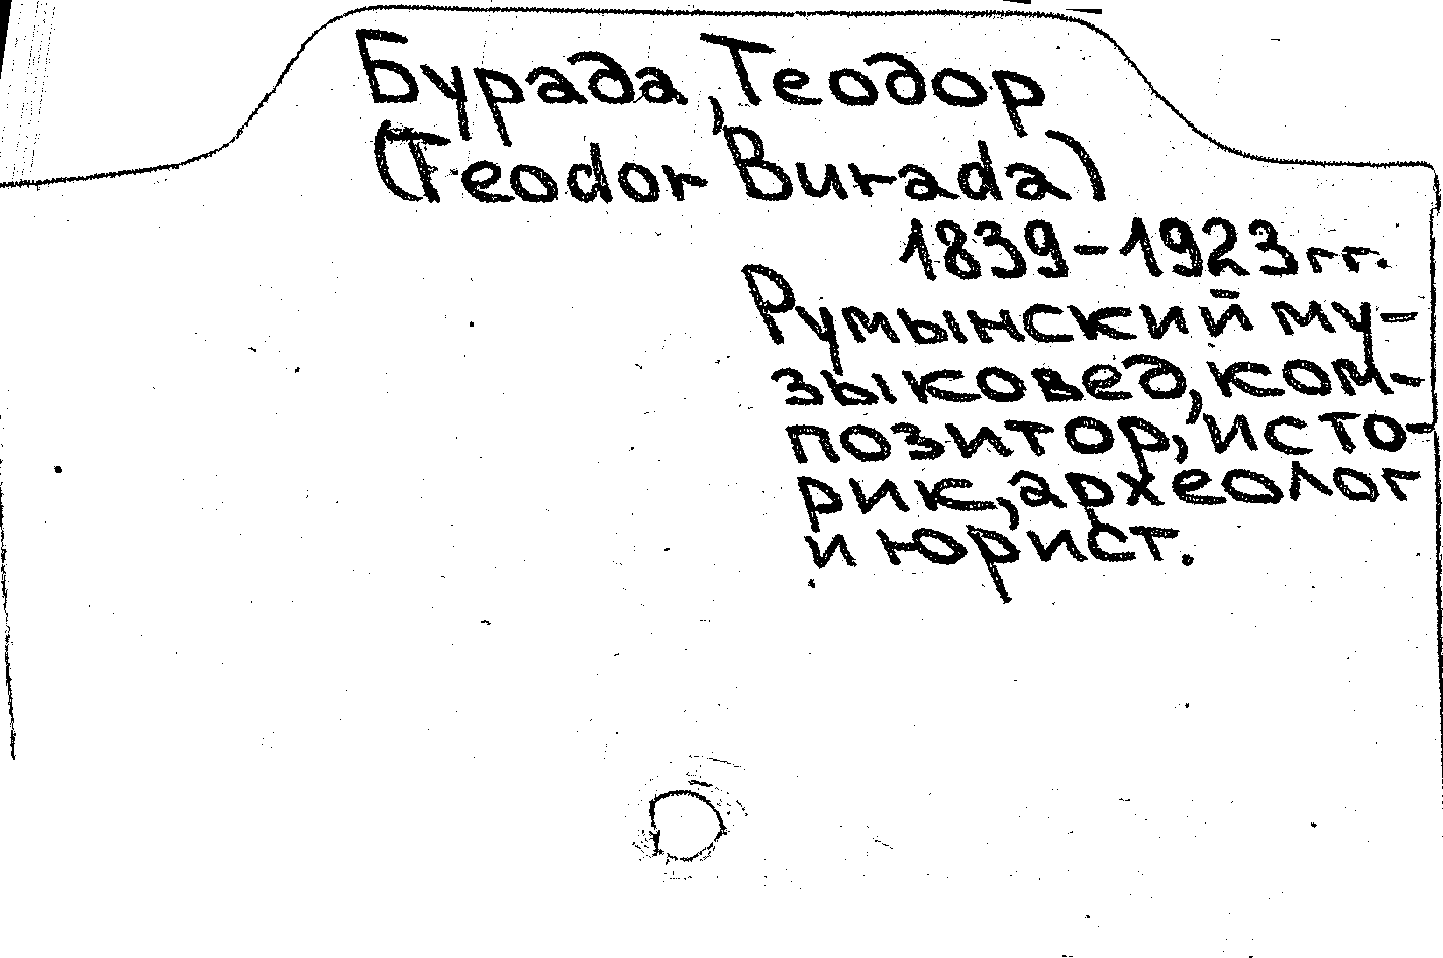 Бурада, Теодор
(Teodor Burada)
1839-1923гг.
Румынский му-
зыковед, ком-
позитор, исто-
рик, археолог
и юрист.